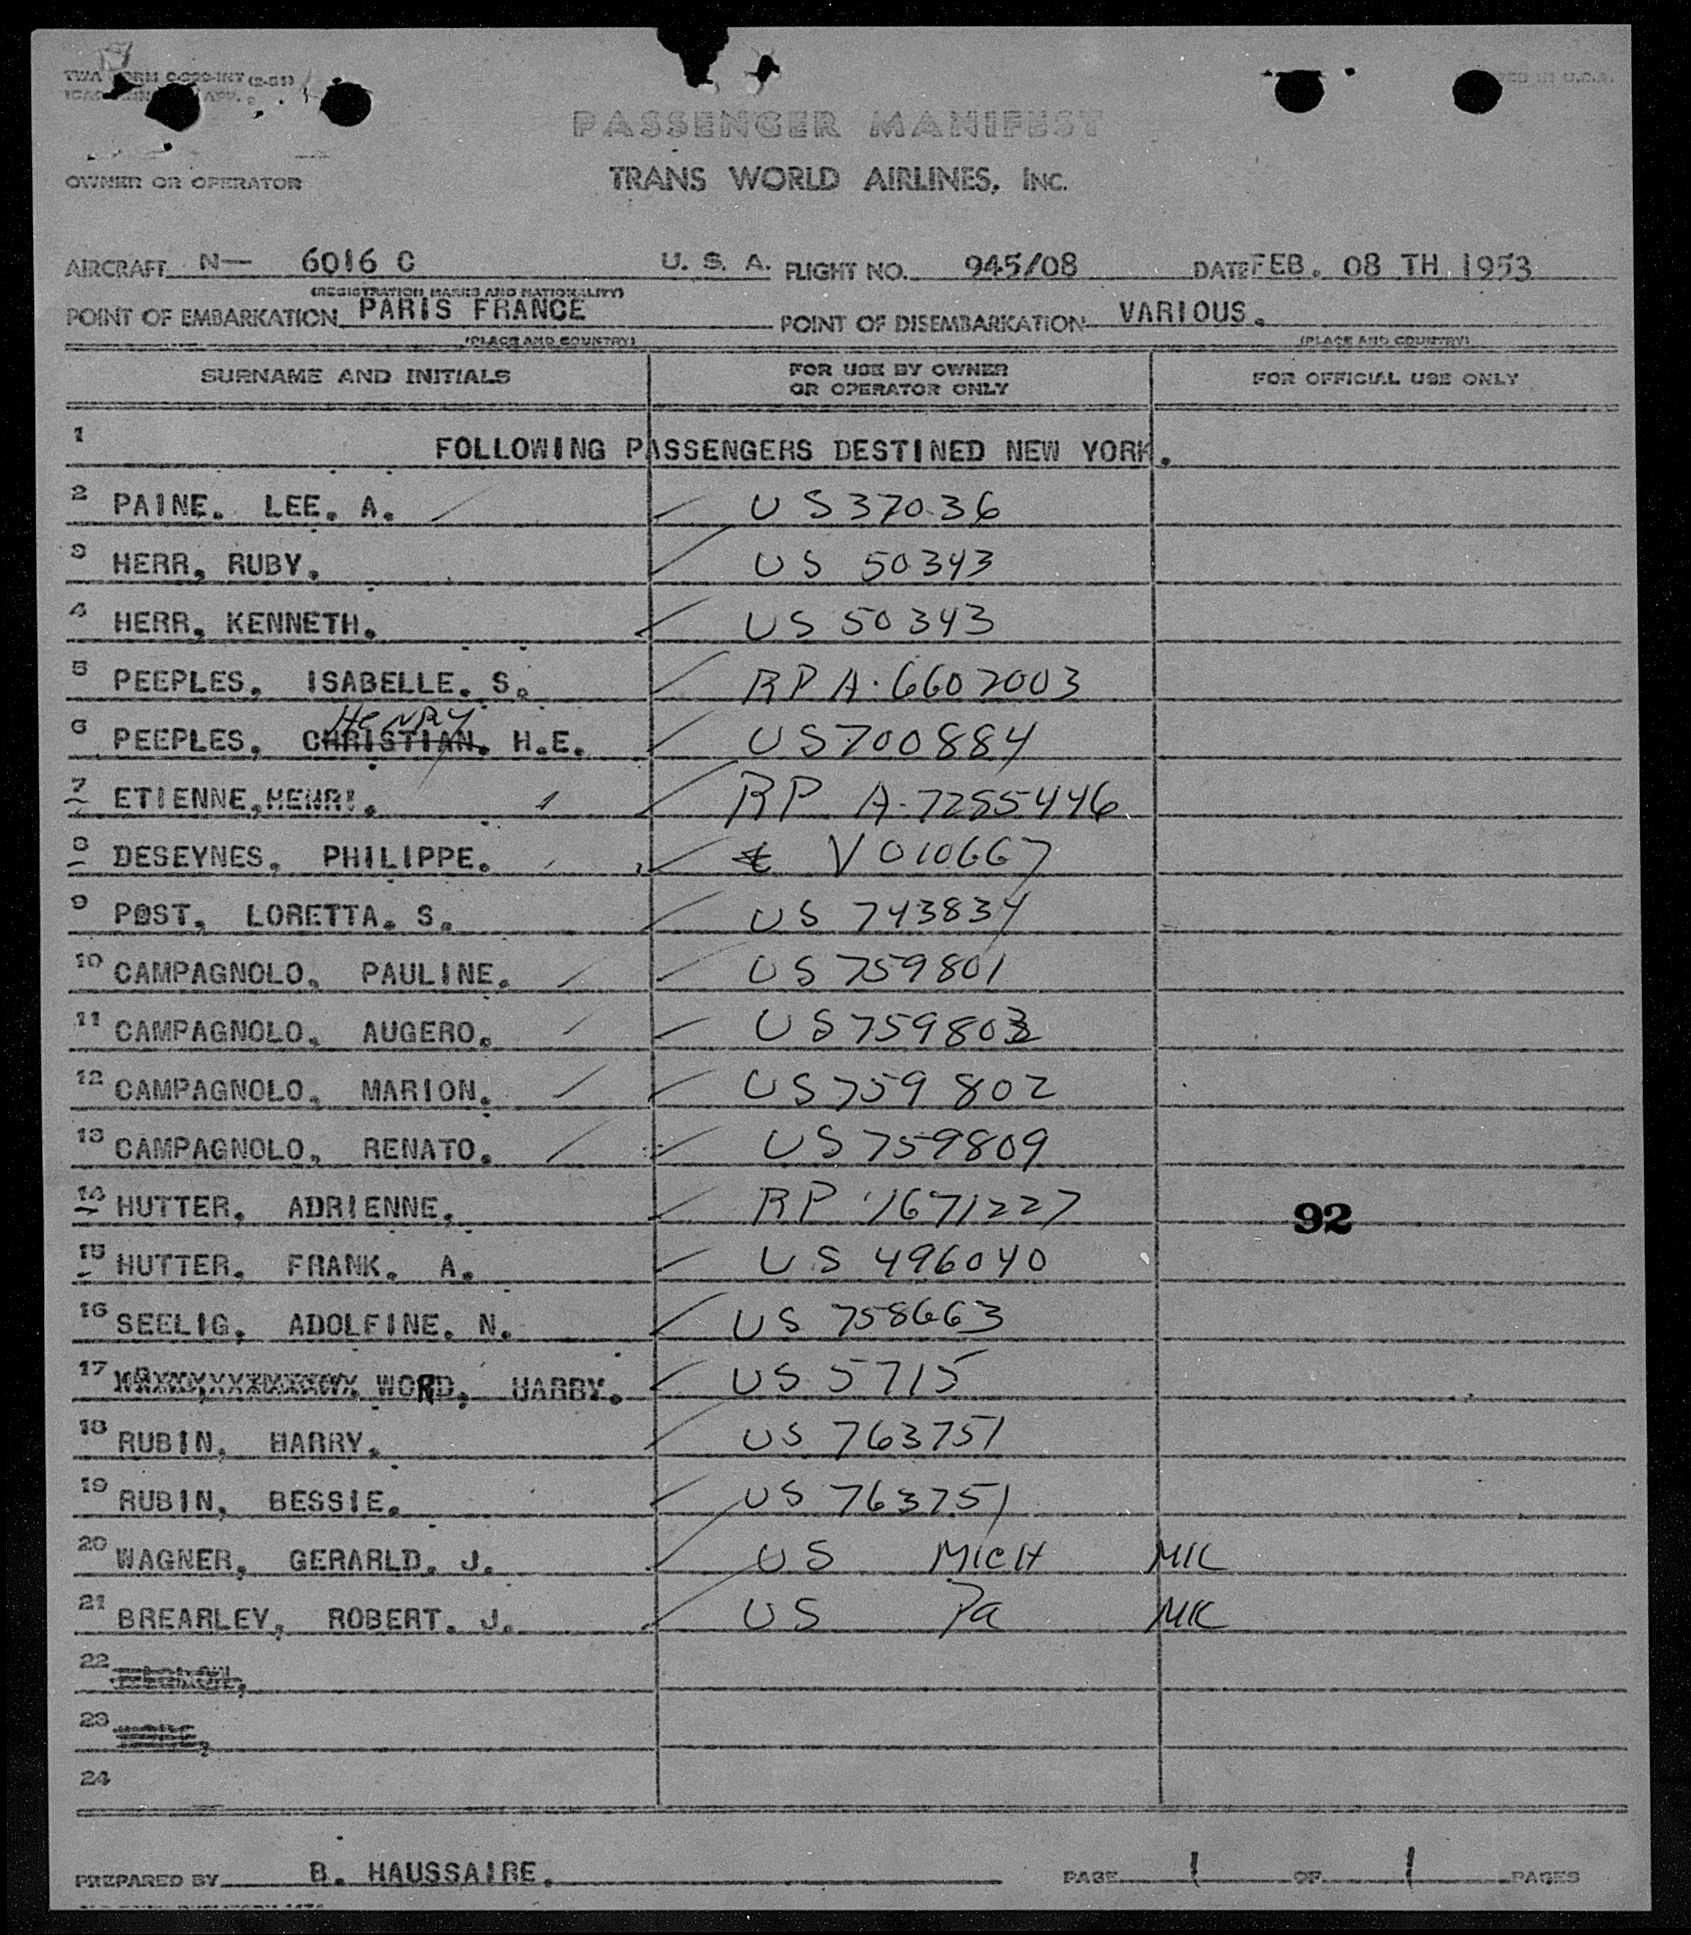 TWA FORM
PASSENGER MANIFEST
OWNER OR OPERATOR
TRANS WORLD AIRLINES, INC.
AIRCRAFT N— 6016 C U. S. A. FLIGHT NO. 945/08 DATE FEB. 08 TH 1953
(REGISTRATION MARKS AND NATIONALITY)
POINT OF EMBARKATION PARIS FRANCE POINT OF DISEMBARKATION VARIOUS.
(PLACE AND COUNTRY) (PLACE AND COUNTRY)
SURNAME AND INITIALS FOR USE BY OWNER OR OPERATOR ONLY FOR OFFICIAL USE ONLY
1 FOLLOWING PASSENGERS DESTINED NEW YORK.
2 PAINE. LEE. A. US 37036
3 HERR, RUBY. US 50343
4 HERR, KENNETH. US 50343
5 PEEPLES, ISABELLE. S. RP A-6607003
HENRY
6 PEEPLES, CHRISTIAN. H.E. US 700884
7 ETIENNE,HENRI. RP A-7255446
8 DESEYNES, PHILIPPE. V 010667
9 POST, LORETTA. S. US 743834
10 CAMPAGNOLO, PAULINE. US 759801
11 CAMPAGNOLO, AUGERO. US 759803
12 CAMPAGNOLO, MARION. US 759 802
13 CAMPAGNOLO, RENATO. US 759809
14 HUTTER, ADRIENNE, RP 1671227
92
15 HUTTER, FRANK. A. US 496040
16 SEELIG, ADOLFINE. N. US 758663
17 WORD, HARRY. US 5715
18 RUBIN, HARRY. US 763751
19 RUBIN, BESSIE. US 763751
20 WAGNER, GERARLD. J. US MICH MK
21 BREARLEY, ROBERT. J. US Pa MK
22
23
24
PREPARED BY B. HAUSSAIRE. PAGE 1 OF 1 PAGES